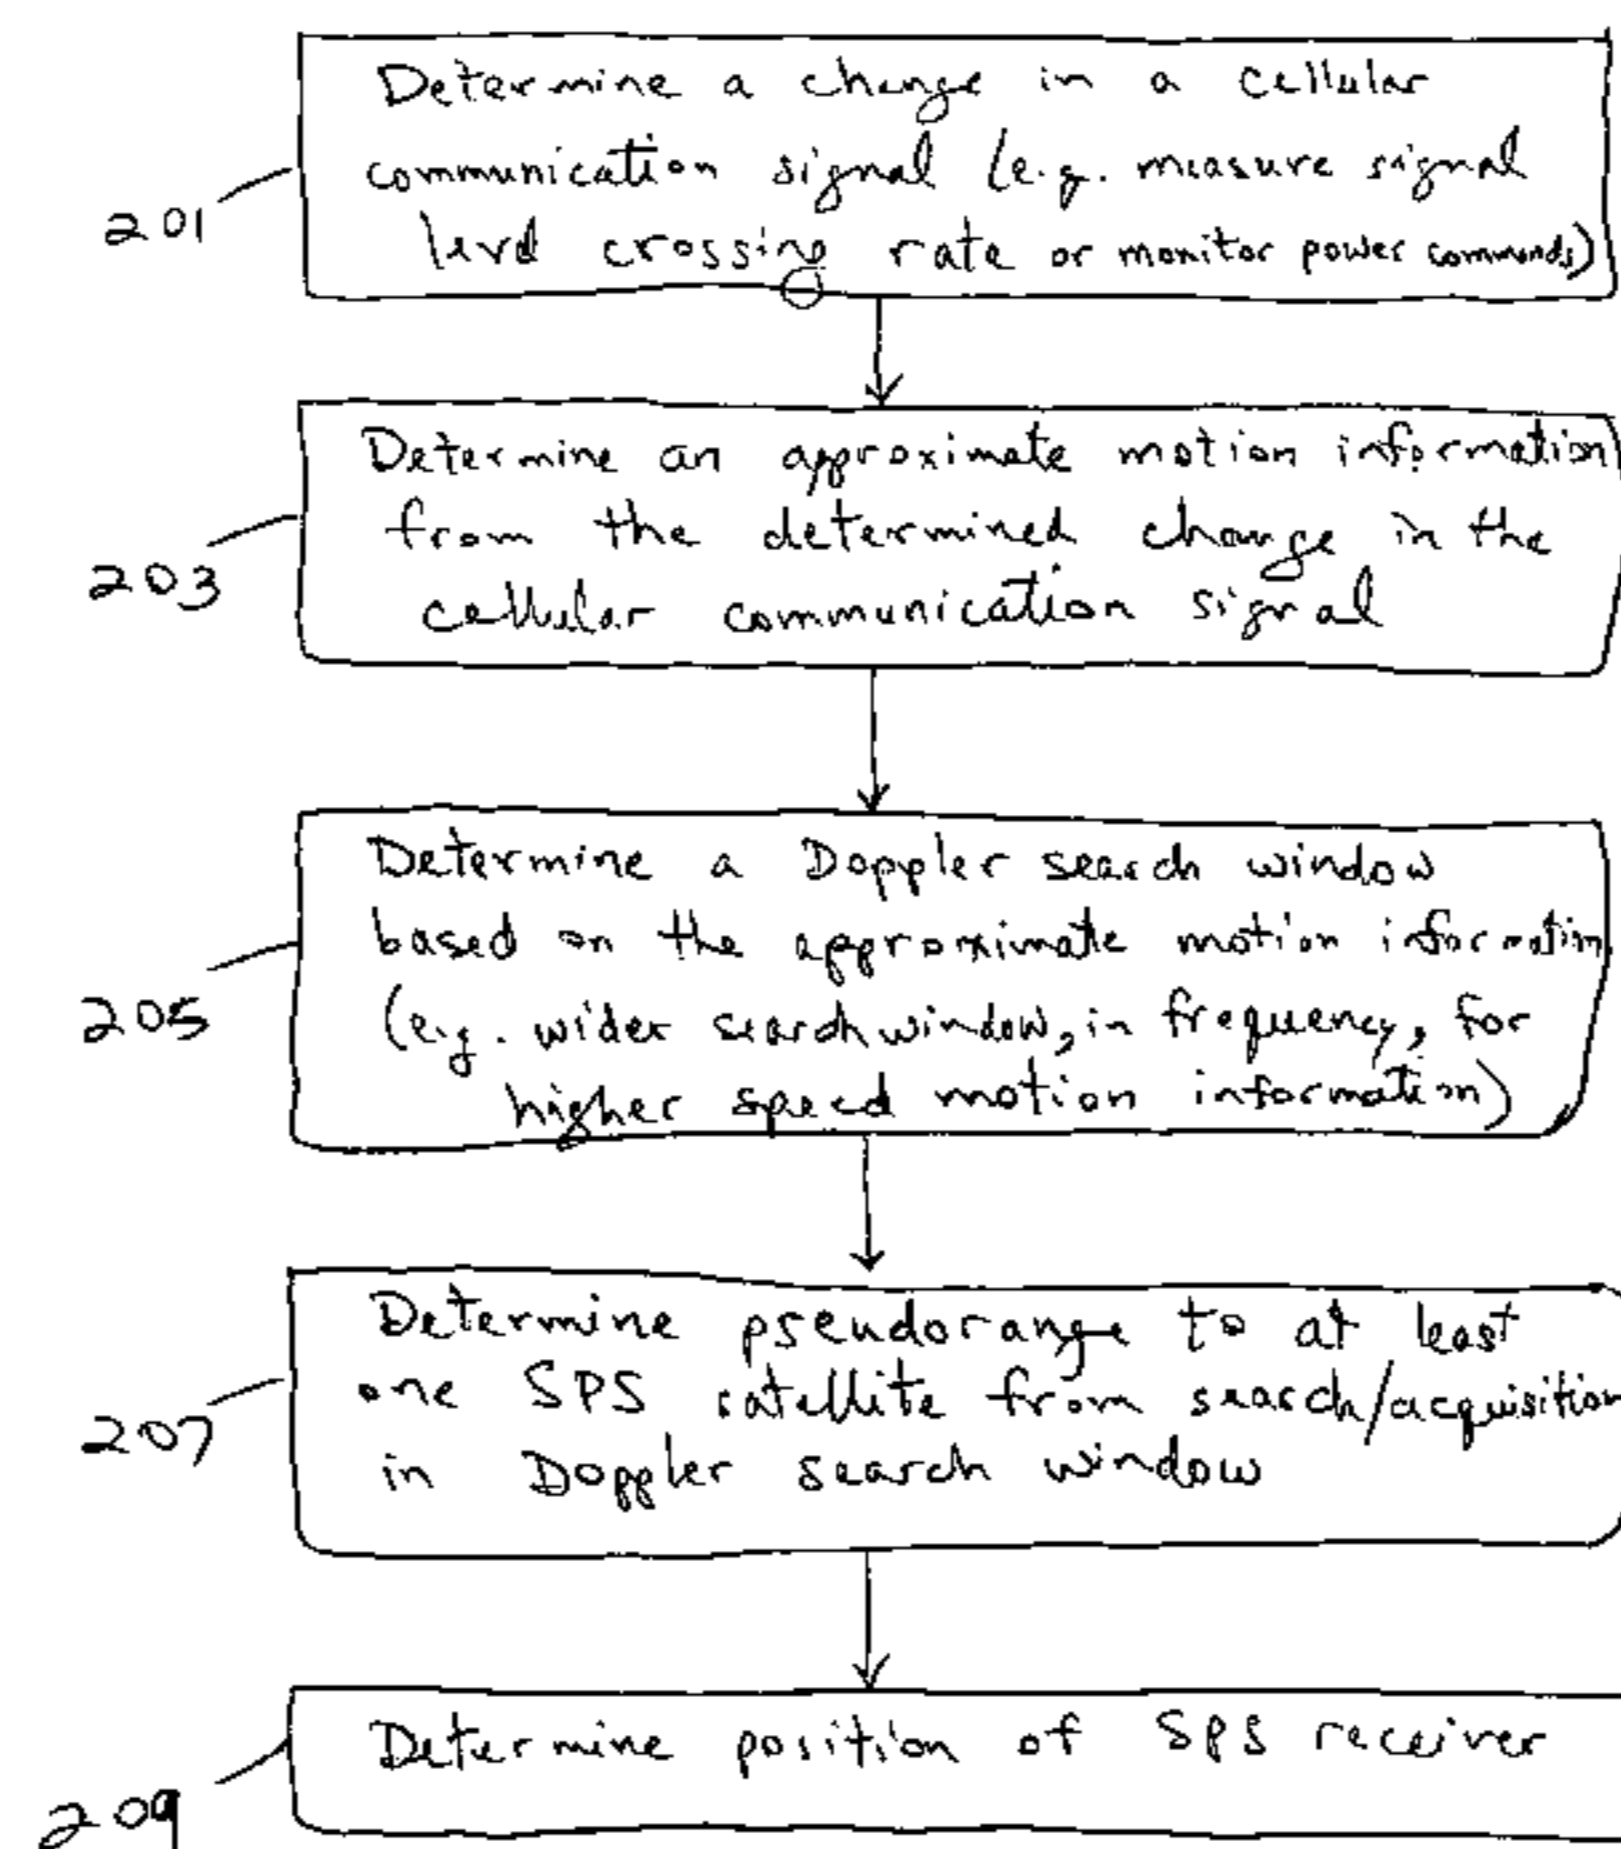 Determine a change in a cellular
communication signal (e.g. measure signal
level crossing rate or monitor power commands)
201
Determine an approximate motion information
from the determined change in the
cellular communication signal
203
Determine a Doppler search window
based on the approximate motion information
(e.g. wider search window, in frequency, for
higher speed motion information)
205
Determine pseudorange to at least
one SPS satellite from search/acquisition
in Doppler search window
207
Determine position of SPS receiver
209